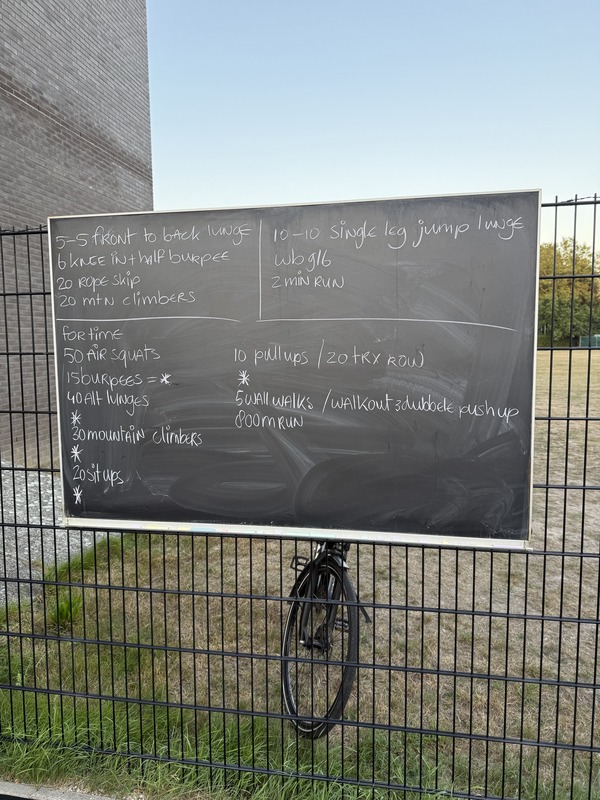 5-5 front to back lunge
6 knee in + half burpee
20 rope skip
20 mtn climbers
10-10 single leg jump lunge
wb g16
2 min run
for time
50 air squats
15 burpees = *
40 alt lunges
*
30 mountain climbers
*
20 sit ups
*
10 pull ups / 20 trx row
*
5 wall walks / walkout 3 dubbele push up
800m run